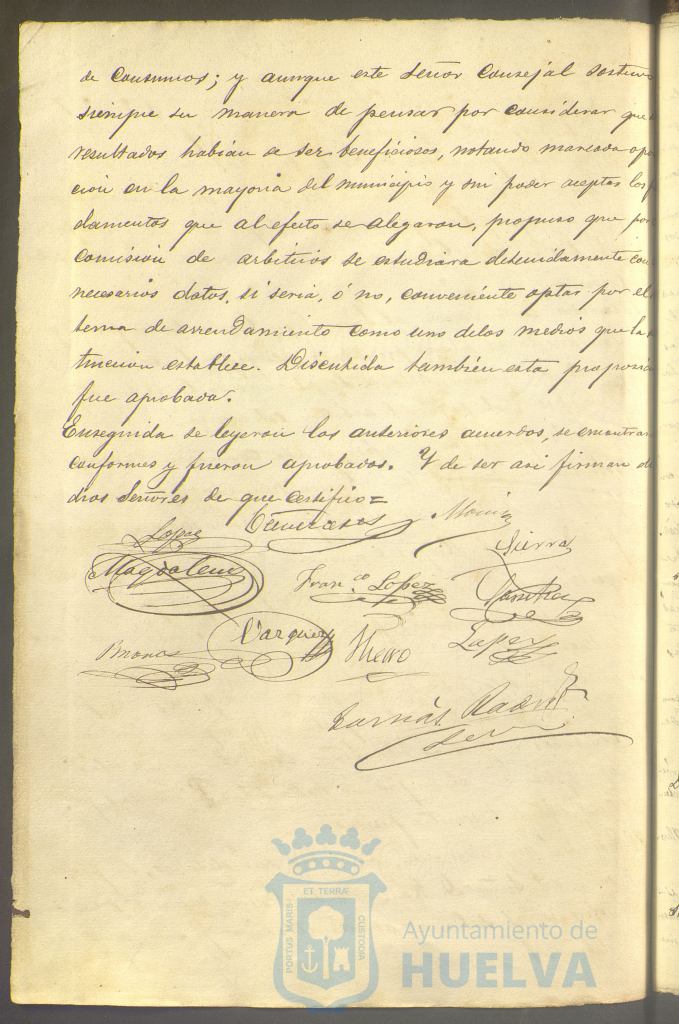 de Consumos; y aunque este Señor Consejal sostuvo
siempre su manera de pensar por considerar que
resultados habian de ser beneficiosos, notando marcada opo
cion en la mayoria del municipio y sin poder aceptar los
damentos que al efecto se alegaron, propuso que por
Comision de arbitrios se estudiara detenidamente con
necesarios datos, si seria, ó no, conveniente optar por el
tema de arrendamiento como uno delos medios que la
truccion establece. Discutida tambien esta proposic
fue aprobada.
Enseguida se leyeron los anteriores acuerdos, se encontraron
conformes y fueron aprobados. Y de ser asi firman di
chos Señores de que certifico=
Lopez
Sierra
Magdalena
Fran.co Lopez
Sanchez
Vazquez
Lopez
PORTUS MARIS ET TERRÆ CUSTODIA
Ayuntamiento de
HUELVA